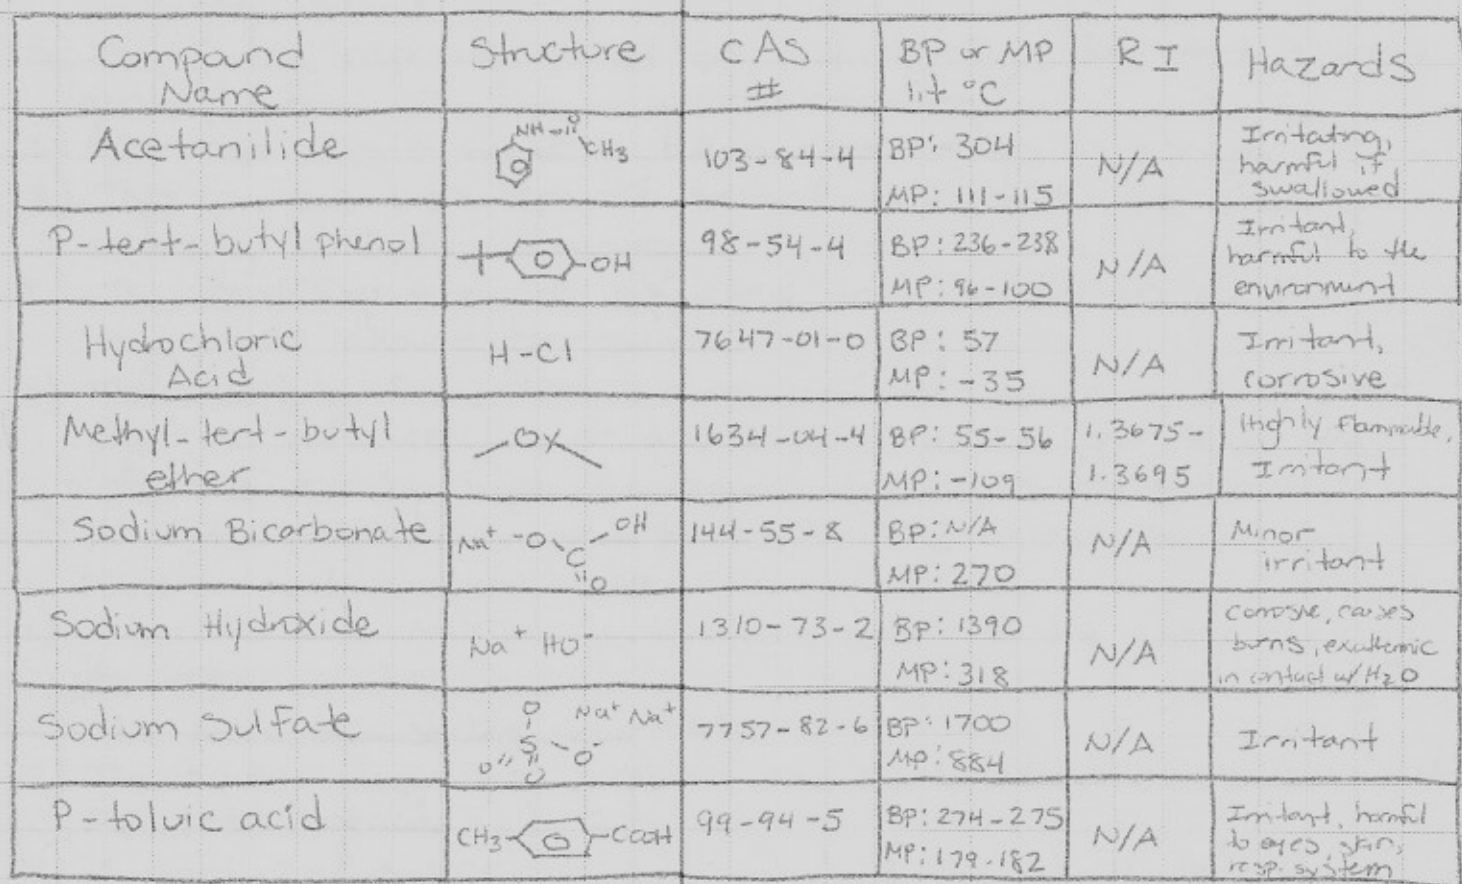 Compound Name
Structure
CAS #
BP or MP lit °C
RI
Hazards
Acetanilide
NH
O
CH3
103-84-4
BP: 304
MP: 111-115
N/A
Irritating,
harmful if
swallowed
P-tert-butyl phenol
OH
98-54-4
BP: 236-238
MP: 96-100
N/A
Irritant,
harmful to the
environment
Hydrochloric
Acid
H-Cl
7647-01-0
BP: 57
MP: -35
N/A
Irritant,
corrosive
Methyl-tert-butyl
ether
O
1634-04-4
BP: 55-56
MP: -109
1.3675-
1.3695
Highly flammable,
Irritant
Sodium Bicarbonate
Na+ -O C OH
O
144-55-8
BP: N/A
MP: 270
N/A
Minor
irritant
Sodium Hydroxide
Na+ HO-
1310-73-2
BP: 1390
MP: 318
N/A
corrosive, causes
burns, exothermic
in contact w/ H2O
Sodium Sulfate
O Na+ Na+
S O-
O O
7757-82-6
BP: 1700
MP: 884
N/A
Irritant
P-toluic acid
CH3 COOH
99-94-5
BP: 274-275
MP: 179-182
N/A
Irritant, harmful
to eyes, skin,
resp. system